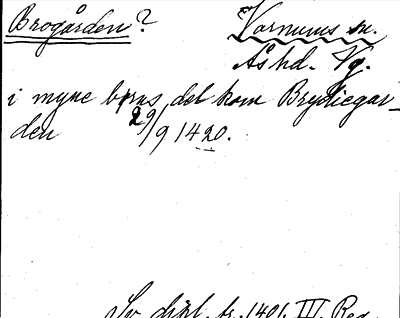 Brogården? Varnums sn.
Ås hd. Vg.
i myne byrus, det kom Brydiegar-
den 29/9 1420.
Sv. dipl. fr. 1401. III. Reg.